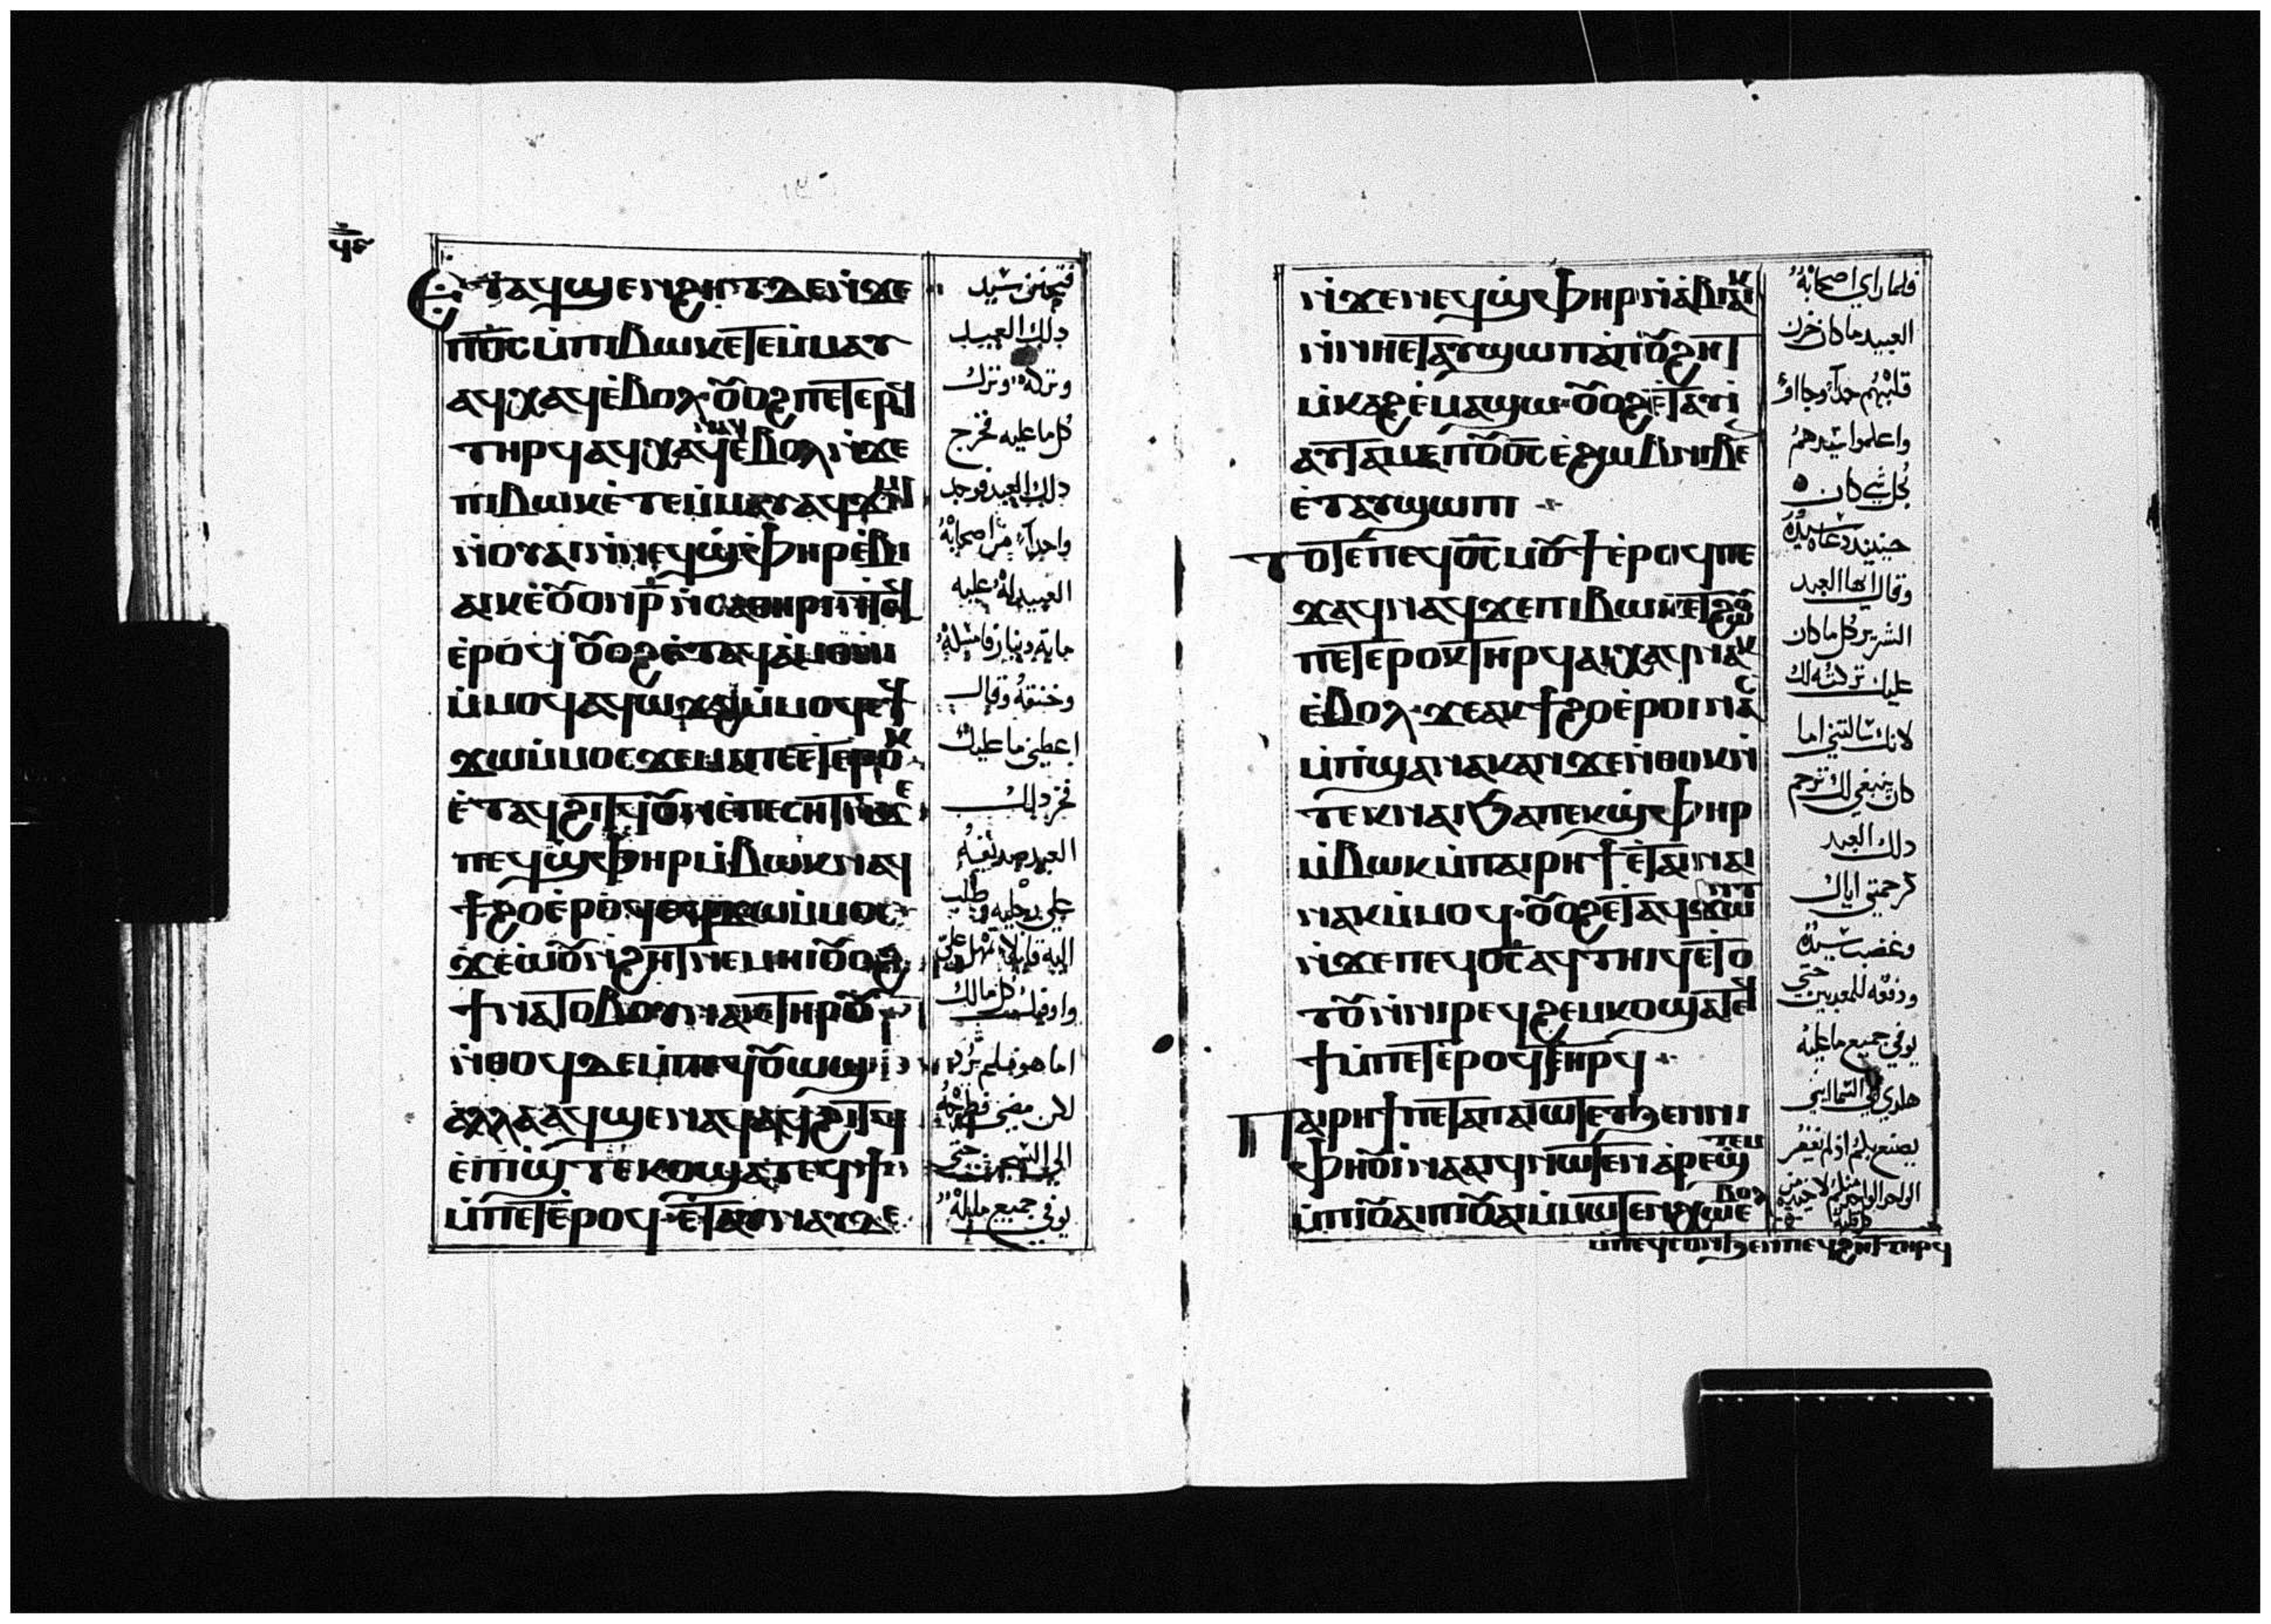 ϥⲉ
Ⲉⲧⲁϥϣⲉⲛϩⲏⲧ ⲇⲉ ⲛ̀ϫⲉ
ⲡⲟ̅ⲥ̅ ⲙ̀ⲡⲓⲃⲱⲕ ⲉⲧⲉⲙ̀ⲙⲁⲩ
ⲁϥⲭⲁϥ ⲉ̀ⲃⲟⲗ ⲟⲩⲟϩ ⲡⲉⲧⲉⲣⲟϥ
ⲧⲏⲣϥ ⲁϥⲭⲁϥ ⲛⲁϥ ⲉ̀ⲃⲟⲗ ⲛ̀ϫⲉ
ⲡⲓⲃⲱⲕ ⲉ̀ⲧⲉⲙ̀ⲙⲁⲩ ⲁϥϫⲓⲙⲓ
ⲛ̀ⲟⲩⲁⲓ ⲛ̀ⲛⲉϥϣ̀ⲫⲏⲣ ⲉ̀ⲃⲓ
ⲁⲓⲕ ⲉ̀ⲟⲩⲟⲛ ⲣ̅ ⲛ̀ⲥⲁⲑⲏⲣⲓ ⲛ̀ⲧⲁϥ
ⲉ̀ⲣⲟϥ ⲟⲩⲟϩ ⲉ̀ⲧⲁϥⲁ̀ⲙⲟⲛⲓ
ⲙ̀ⲙⲟϥ ⲁϥⲱϫϩ ⲙ̀ⲙⲟϥ ⲉϥ
ϫⲱ ⲙ̀ⲙⲟⲥ ϫⲉ ⲙⲁ ⲡⲉⲧⲉⲣⲟⲕ
ⲉ̀ⲧⲁϥϩⲓⲧϥ ⲟⲩⲛ ⲉ̀ⲡⲉⲥⲏⲧ ⲛ̀ϫⲉ
ⲡⲉϥϣ̀ⲫⲏⲣ ⲙ̀ⲃⲱⲕ ⲛⲁϥ
ϯϩⲟ ⲉ̀ⲣⲟϥ ⲉϥϫⲱ ⲙ̀ⲙⲟⲥ
ϫⲉ ⲱ̀ⲟⲩⲛ̀ϩⲏⲧ ⲛⲉⲙⲏⲓ ⲟⲩⲟϩ
ϯⲛⲁⲧⲟⲃⲟⲩ ⲛⲁⲕ ⲧⲏⲣⲟⲩ
ⲛ̀ⲑⲟϥ ⲇⲉ ⲙ̀ⲡⲉϥⲟⲩⲱϣ
ⲁⲗⲗⲁ ⲁϥϣⲉ ⲛⲁϥ ⲁϥϩⲓⲧϥ
ⲉ̀ⲡⲓϣ̀ⲧⲉⲕⲟ ϣⲁⲧⲉϥϯ
ⲙ̀ⲡⲉⲧⲉ̀ⲣⲟϥ ⲉ̀ⲧⲁⲩⲛⲁⲩ ⲇⲉ
فتحنن سيد
ذلك العبد
وتركه وترك
كل ما عليه فخرج
ذلك العبد فوجد
واحداً من اصحابه
العبيد له عليه
ماية دينار فامسكه
وخنقه وقال
اعطيني ما عليك
فخر ذلك
العبد صديقه
علي رجليه وطلب
اليه قايلا تمهل علي
واوفيك كل مالك
اما هو فلم يرد
لكن مضي فطرحه
الي السجن حتي
يوفي جميع ما له
ⲛ̀ϫⲉ ⲛⲉϥϣ̀ⲫⲏⲣ ⲛ̀ⲁ̀ⲃⲓⲁⲓⲕ
ⲛ̀ⲛⲏⲉⲧⲁⲩϣⲱⲡⲓ ⲁ̀ⲡⲟⲩϩⲏⲧ
ⲙ̀ⲕⲁϩ ⲉ̀ⲙⲁϣⲱ ⲟⲩⲟϩ ⲉ̀ⲧⲁⲩⲓ̀
ⲁⲩⲧⲁⲙⲉ ⲡⲟⲩⲟ̅ⲥ̅ ⲉ̀ϩⲱⲃ ⲛⲓⲃⲉⲛ
ⲉ̀ⲧⲁⲩϣⲱⲡⲓ
Ⲧⲟⲧⲉ ⲡⲉϥⲟ̅ⲥ̅ ⲙⲟⲩϯ ⲉ̀ⲣⲟϥ ⲡⲉ
ϫⲁϥ ⲛⲁϥ ϫⲉ ⲡⲓⲃⲱⲕ ⲉⲧϩⲱⲟⲩ
ⲡⲉⲧⲉⲣⲟⲕ ⲧⲏⲣϥ ⲁⲓⲭⲁϥ ⲛⲁⲕ
ⲉ̀ⲃⲟⲗ ϫⲉ ⲁⲕϯϩⲟ ⲉ̀ⲣⲟⲓ ⲛⲁⲥ
ⲙ̀ⲡϣⲁ ⲛⲁⲕ ⲁⲛ ϫⲉ ⲛ̀ⲑⲟⲕ ⲛ̀
ⲧⲉⲕⲛⲁⲓ ϧⲁ ⲡⲉⲕϣ̀ⲫⲏⲣ
ⲙ̀ⲃⲱⲕ ⲙ̀ⲡⲁⲓⲣⲏϯ ⲉ̀ⲧⲁⲓⲛⲁⲓ
ⲛⲁⲕ ⲙ̀ⲙⲟϥ ⲟⲩⲟϩ ⲉ̀ⲧⲁϥϫⲱⲛⲧ
ⲛ̀ϫⲉ ⲡⲉϥⲟ̅ⲥ̅ ⲁϥⲧⲏⲓϥ ⲉ̀ⲧⲟ
ⲧⲟⲩ ⲛ̀ⲛⲓⲣⲉϥϩⲉⲙⲕⲟ ϣⲁⲧⲉϥ
ϯ ⲙ̀ⲡⲉⲧⲉ̀ⲣⲟϥ ⲧⲏⲣϥ
Ⲡⲁⲓⲣⲏϯ ⲡⲉⲧⲁ ⲡⲁⲓⲱⲧ ⲉⲧϧⲉⲛ ⲛⲓ
ⲫⲏⲟⲩⲓ̀ ⲛⲁⲁⲓϥ ⲛⲱⲧⲉⲛ ⲁⲣⲉϣⲧⲉⲙ
ⲙ̀ⲡⲓⲟⲩⲁⲓ ⲡⲓⲟⲩⲁⲓ ⲙ̀ⲙⲱⲧⲉⲛ ⲭⲱ ⲉ̀ⲃⲟⲗ
ⲙ̀ⲡⲉϥⲥⲟⲛ ϧⲉⲛ ⲡⲉϥϩⲏⲧ ⲧⲏⲣϥ
فلما راي اصحابه
العبيد ما كان حزن
قلبهم جداً وجااو
واعلموا سيدهم
بكل شي كان
حينيذ دعاه سيده
وقال ايها العبد
الشرير كل ما كان
عليك تركته لك
لانك سالتني اما
كان ينبغي لك ترحم
ذلك العبد
كرحمتي اياك
وغضب سيده
ودفعه للمعدبين حتي
يوفي جميع ما عليه
هكدي ابي السماايي
يصنع بكم اذ لم يغفر
الواحد الواحد منكم لاخيه من
كل قلبه